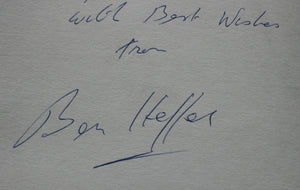 with Best Wishes
from
Ben Helfer